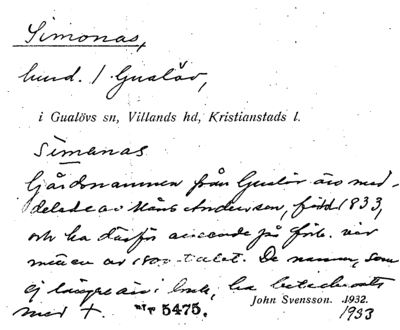 Simonas,
hmd. 1 Gualöv,
i Gualövs sn, Villands hd, Kristianstads l.
Simonas
Gårdsnamnen från Gualöv äro med-
delade av Måns Andersson, född 1833,
och ha därför avseende på förh. vid
mitten av 1800-talet. De namn, som
ej längre äro i bruk, ha betecknats
med +. N:r 5475. John Svensson. 1932.
1933